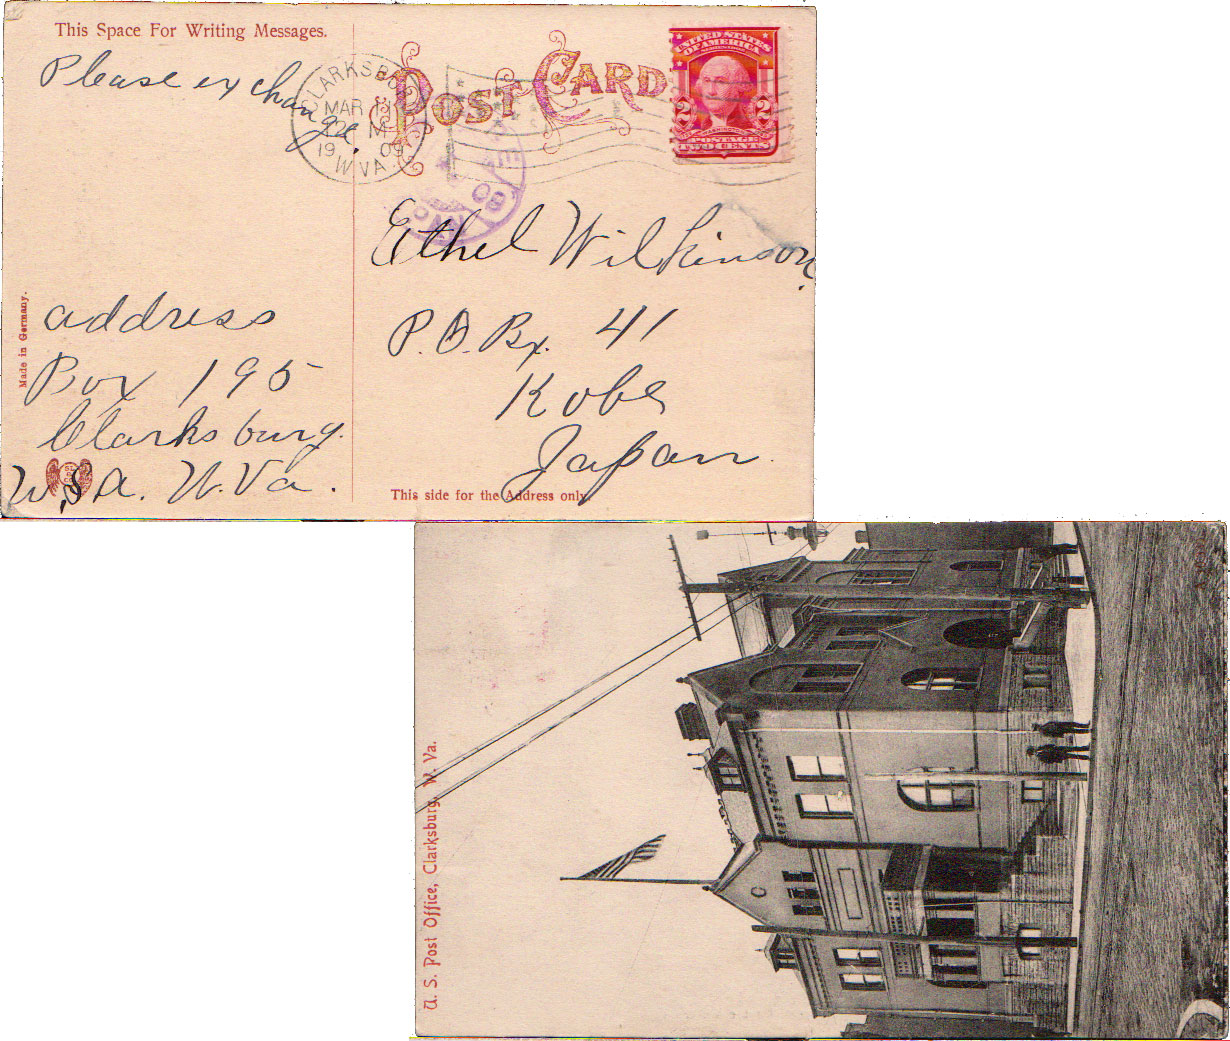 This Space For Writing Messages.
Please exchange.
POST CARD
UNITED STATES
OF AMERICA
2 2
POSTAGE
TWO CENTS
CLARKSBU
MAR
M
19 09
W.VA.
KOBE
Ethel Wilkinson.
P.O. Bx. 41
Kobe
Japan.
address
Box 195
Clarksburg.
U.S.A. W.Va.
Made in Germany.
This side for the Address only.
U. S. Post Office, Clarksburg, W. Va.